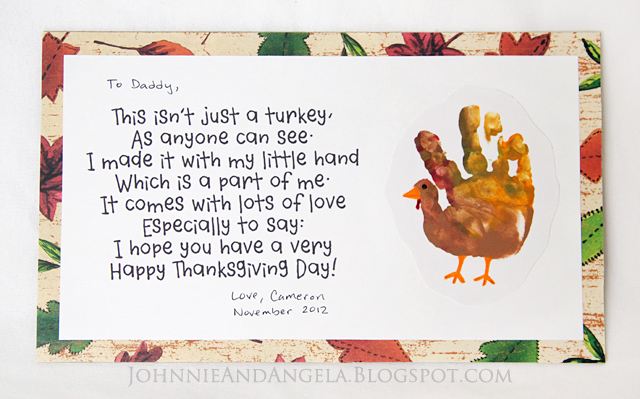 To Daddy,
This isn't just a turkey,
As anyone can see.
I made it with my little hand
Which is a part of me.
It comes with lots of love
Especially to say:
I hope you have a very
Happy Thanksgiving Day!
Love, Cameron
November 2012
JohnnieAndAngela.Blogspot.com